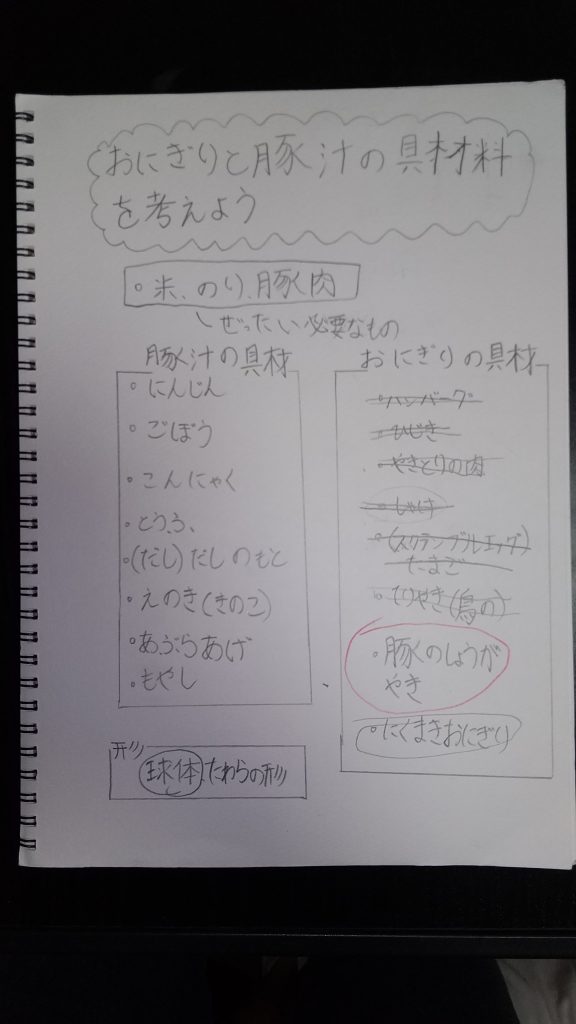 おにぎりと豚汁の具材料
を考えよう
・米、のり、豚肉
ぜったい必要なもの
豚汁の具材
・にんじん
・ごぼう
・こんにゃく
・とうふ、
・(だし)だしのもと
・えのき(きのこ)
・あぶらあげ
・もやし
おにぎりの具材
・ハンバーグ
・ひじき
・やきとりの肉
・しゃけ
・(スクランブルエッグ)
たまご
・てりやき(鳥の)
・豚のしょうが
やき
・にくまきおにぎり
形
球体、たわらの形